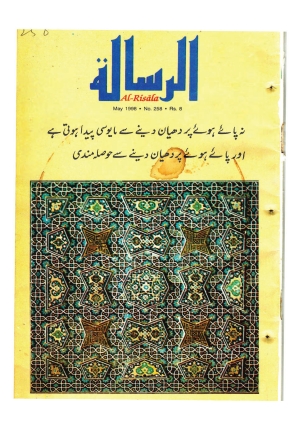 الرسالة
Al-Risāla
May 1998 • No. 258 • Rs. 8
نہ پائے ہوئے پر دھیان دینے سے مایوسی پیدا ہوتی ہے
اور پائے ہوئے پر دھیان دینے سے حوصلہ مندی